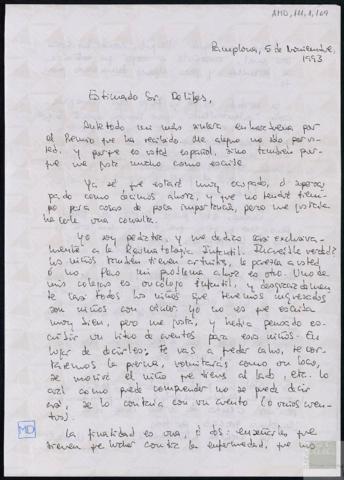 AMD, 111, 1, 169
Pamplona, 5 de Diciembre,
1993
Estimado Sr. Delibes,
Ante todo mi más sincera enhorabuena por
el Premio que ha recibido. Me alegro no sólo por us-
ted, y porque es usted español, sino también por-
que me gusta mucho como escribe.
Ya sé que estará muy ocupado, o supero-
pado como decimos ahora, y que no tendrá tiem-
po para cosas de poca importancia, pero me gustaría
hacerle una consulta.
Yo soy pediatra, y me dedico casi exclusiva-
mente a la Reumatología Infantil. Increíble verdad?
los niños también tienen artritis, le parezca a usted
o no. Pero mi problema ahora es otro. Uno de
mis colegas es oncólogo infantil, y desgraciadamen-
te casi todos los niños que tenemos ingresados
son niños con cáncer. Yo no es que escriba
muy bien, pero me gusta, y había pensado es-
cribir un libro de cuentos para esos niños. En
lugar de decirles: Te vas a quedar calvo, te cor-
taremos la pierna, vomitarás como un loco,
se morirá el niño que tienes al lado, etc. lo
cual como puede comprender no se puede decir
así, se lo contaría con un cuento (o varios cuen-
tos).
La finalidad es una, o dos: enseñarles que
tienen que luchar contra la enfermedad, que no
MD